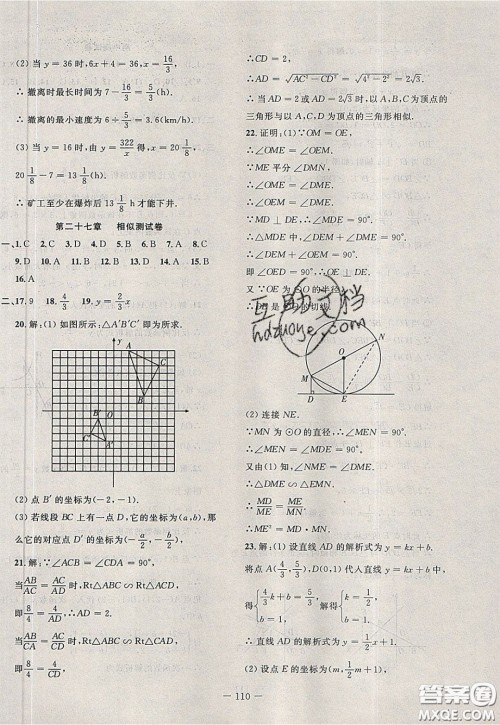 (2) 当 y = 36 时, 6x + 4 = 36, x = 16/3
∴ 撤离时最长时间为 7 − 16/3 = 5/3 (h).
∴ 撤离的最小速度为 6 ÷ 5/3 = 3.6(km/h).
(3) 当 y = 16 时, y = 322/x 得, x = 20 1/8
20 1/8 − 7 = 13 1/8 (h).
∴ 矿工至少在爆炸后 13 1/8 h 才能下井.
第二十七章 相似测试卷
一、1. C 2. C 3. C 4. B 5. A 6. A 7. C 8. C
9. D 10. A 11. C 12. D 13. A 14. A 15. B
16. A
二、17. 9 18. 4/3 19. y = 2/3 x
20. 解: (1) 如图所示: △A′B′C′ 即为所求.
A
C
B
B′
O
C′
A′
(2) 点 B′ 的坐标为(−2, −1).
(3) 若线段 BC 上有一点 D, 它的坐标为(a, b), 那
么它的对应点 D′ 的坐标为(−a/2, −b/2).
21. 解: ∵ ∠ACB = ∠CDA = 90°.
当 AB/AC = AC/AD 时, Rt△ABC ∽ Rt△ACD,
即 8/4 = 4/AD, ∴ AD = 2.
当 AB/CA = AC/CD 时, Rt△ABC ∽ Rt△CAD,
即 8/4 = 4/CD,
∴ CD = 2,
∴ AD = √AC² − CD² = √4² − 2² = 2√3.
∴ 当 AD = 2 或 AD = 2√3 时, 以 A、C、D 为顶点的
三角形与以 A、C、B 为顶点的三角形相似.
22. 证明: (1) ∵ OM = OE,
∴ ∠OME = ∠OEM.
∵ ME 平分 ∠DMN,
∴ ∠OME = ∠DME.
∴ ∠OEM = ∠DME.
∵ MD ⊥ DE, ∴ ∠MDE = 90°.
∴ ∠DEM + ∠DME = 90°.
∴ ∠DEM + ∠OEM = 90°.
即 ∠OED = 90°, ∴ OE ⊥ DE.
又∵ OE 为 ⊙O 的半径,
∴ DE 是 ⊙O 的切线.
互助文档
hdzuoye.com
N
O
M
D
E
(2) 连接 NE.
∵ MN 为 ⊙O 的直径, ∴ ∠MEN = 90°.
∴ ∠MEN = ∠MDE = 90°.
又由 (1) 知, ∠NME = ∠DME.
∴ △DME ∽ △EMN.
∴ MD/ME = ME/MN.
∴ ME² = MD · MN.
23. 解: (1) 设直线 AD 的解析式为 y = kx + b.
将点 A(4/3, 5/3), D(0, 1) 代入直线 y = kx + b.
∴ 直线 AD 的解析式为 y = 1/2 x + 1.
(2) 设点 E 的坐标为(m, 1/2 m + 1).
— 110 —
答案圈
MXQE.COM